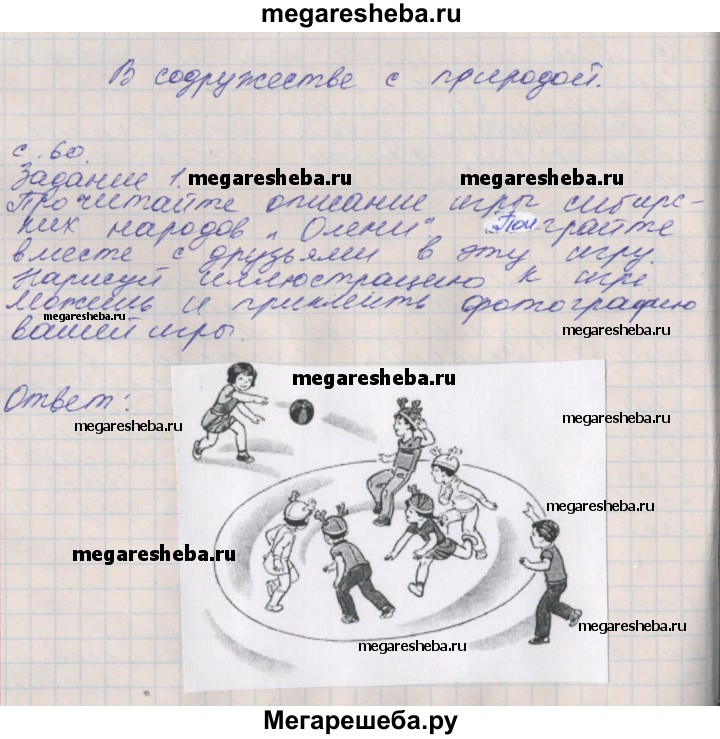 megaresheba.ru
В содружестве с природой.
с. 60.
Задание 1. megaresheba.ru megaresheba.ru
Прочитайте описание игры сибирс-
ких народов „Олени“. Поиграйте
вместе с друзьями в эту игру.
Нарисуй иллюстрацию к игре.
Можешь и приклеить фотографию
megaresheba.ru
вашей игры. megaresheba.ru
megaresheba.ru
Ответ:
megaresheba.ru megaresheba.ru
megaresheba.ru
megaresheba.ru
megaresheba.ru
megaresheba.ru
Мегарешеба.ру